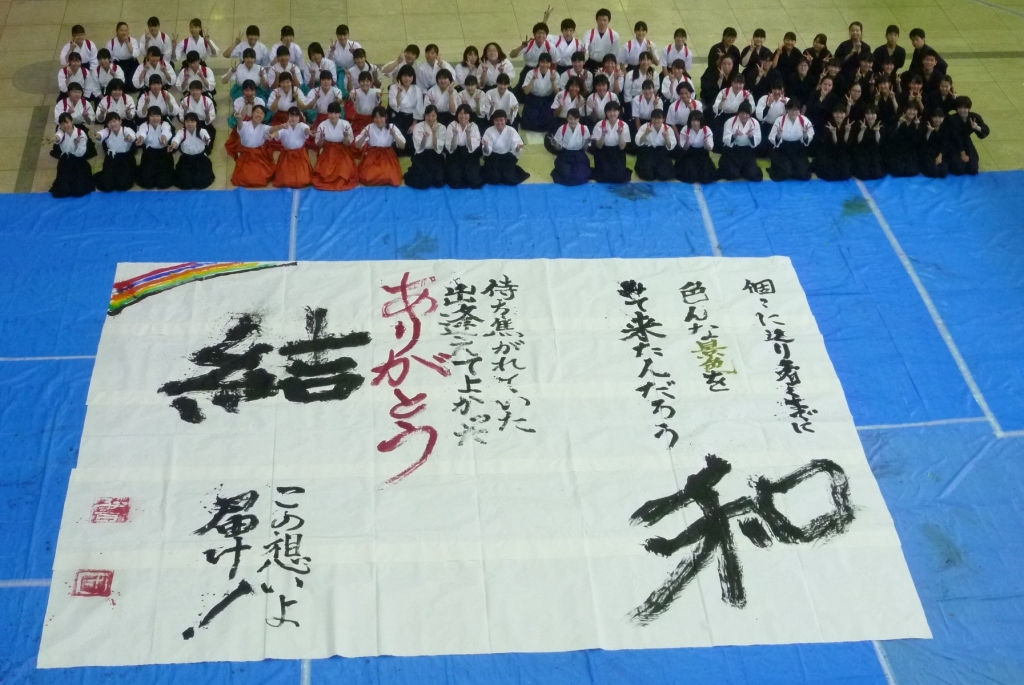 個々に辿り着くまでに
色んな景色を
見て来たんだろう
和
待ち焦がれていた
出逢えてよかった
ありがとう
結
この想いよ
届け！